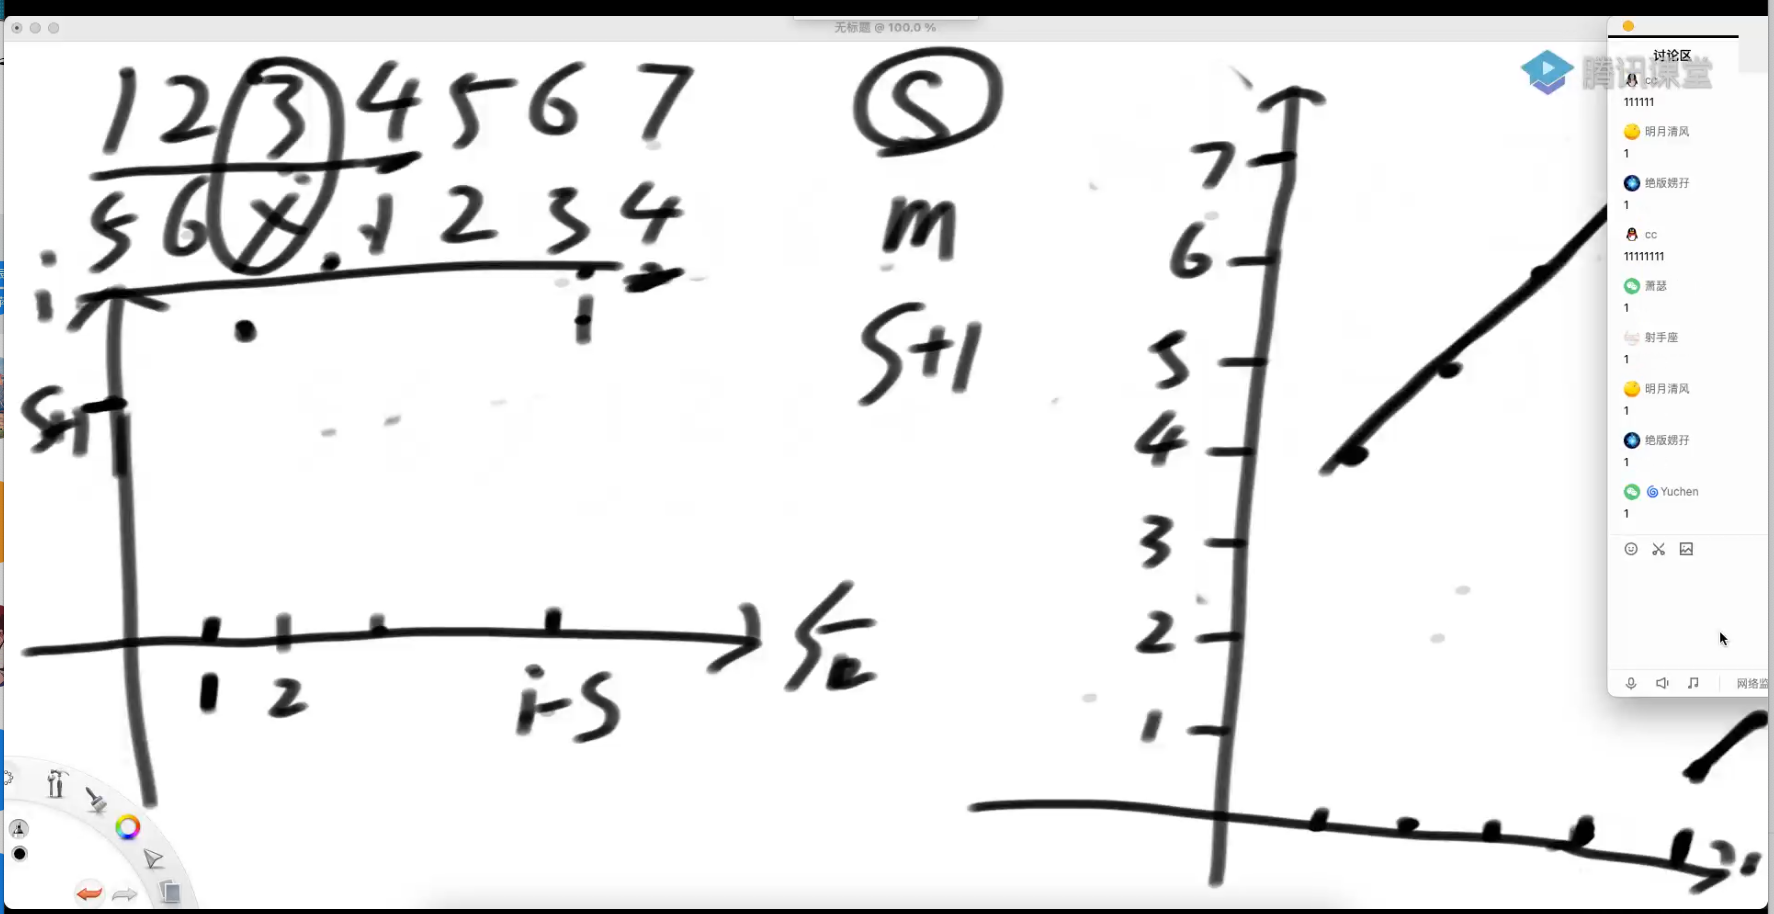 无标题 @ 100.0 %
1 2 3 4 5 6 7
5 6 X 1 2 3 4
i
i
S
m
S+1
S+1
1 2 i-S
7
6
5
4
3
2
1
讨论区
腾讯课堂
cc
111111
明月清风
1
绝版娚孖
1
cc
11111111
萧瑟
1
射手座
1
明月清风
1
绝版娚孖
1
Yuchen
1
网络监